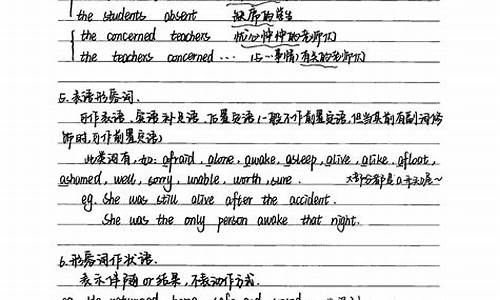 the students absent 缺席的学生
the concerned teachers 忧心忡忡的老师们
the teachers concerned ... (与…事情)有关的老师们
5. 表语形容词.
可作表语、宾语补足语、后置定语(一般不作前置定语,但当其前有副词修
饰时,可作前置定语)
此类词有,如: afraid, alone, awake, asleep, alive, alike, afloat,
ashamed, well, sorry, unable, worth, sure. 大部分都是a开头
eg. She was still alive after the accident.
She was the only person awake that night.
6. 形容词作状语.
表示伴随 or 结果,不表动作方式.
eg. He returned home safe and